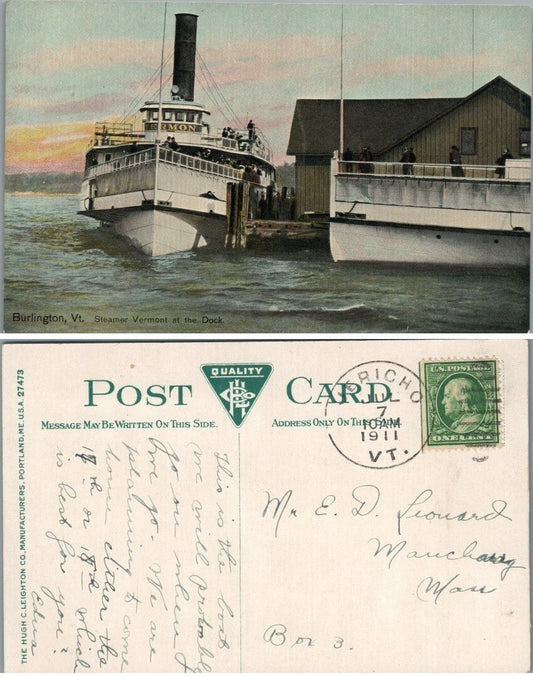 ERMON
Burlington, Vt. Steamer Vermont at the Dock.
THE HUGH C. LEIGHTON CO., MANUFACTURERS, PORTLAND, ME. U.S.A. 27473
QUALITY
POST CARD
MESSAGE MAY BE WRITTEN ON THIS SIDE.
ADDRESS ONLY ON THIS SIDE.
JERICHO
JUL
7
10 AM
1911
VT.
U.S. POSTAGE
ONE CENT
This is the boat
we will probably
go on when
we go. We are
planning to come
home either the
17th or 18th which
is best for you?
Edna
Mr E. D. Leonard
Manchaug
Mass
Box 3.